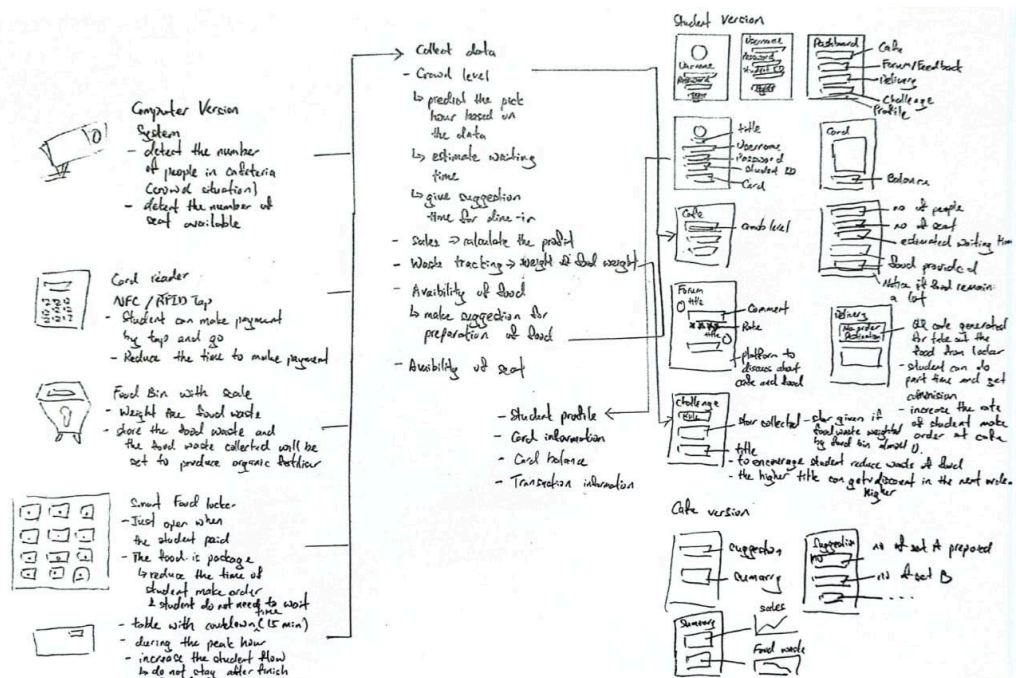 Computer Version
System
- detect the number
of people in cafeteria
(crowd situation)
- detect the number of
seat available
Card reader
NFC / RFID Tap
- Student can make payment
by tap and go
- Reduce the time to make payment
Food Bin with scale
- Weight the food waste
- store the food waste and
the food waste collected will be
set to produce organic fertiliser
Smart Food locker
- Just open when
the student paid
- The food is package
↳ reduce the time of
student make order
& student do not need to wait
- table with countdown (15 min)
time
- during the peak hour
- increase the student flow
↳ do not stay after finish
Collect data
- Crowd level
↳ predict the pick
hour based on
the data
↳ estimate waiting
time
↳ give suggestion
time for dine-in
- Sales → calculate the profit
- Waste tracking → weight of food weight
- Avaibility of food
↳ make suggestion for
preparation of food
- Avaibility of seat
- Student profile
- Card information
- Card balance
- Transaction information
Student Version
Username
Password
Username
Password
Student ID
Dashboard
Cafe
Forum/Feedback
Delivery
Challenge
Profile
title
Username
Password
Student ID
Card
Card
Balance
Cafe
crowd level
no of people
no of seat
estimated waiting time
food provided
Notice if food remain
a lot
Forum
title
Comment
Rate
title
platform to
discuss about
cafe and food
Delivery
No. order
QR code generated
for take out the
food from locker
- student can do
part time and get
commision
- increase the rate
of student make
order at cafe
Challenge
title
star collected - star given if
food waste weighted
by food bin almost 0.
title
- to encourage student reduce waste of food
- the higher title can get discount in the next order
higher
Cafe version
suggestion
summary
Suggestion
no of set A prepared
no of set B
.....
Summary
sales
Food waste